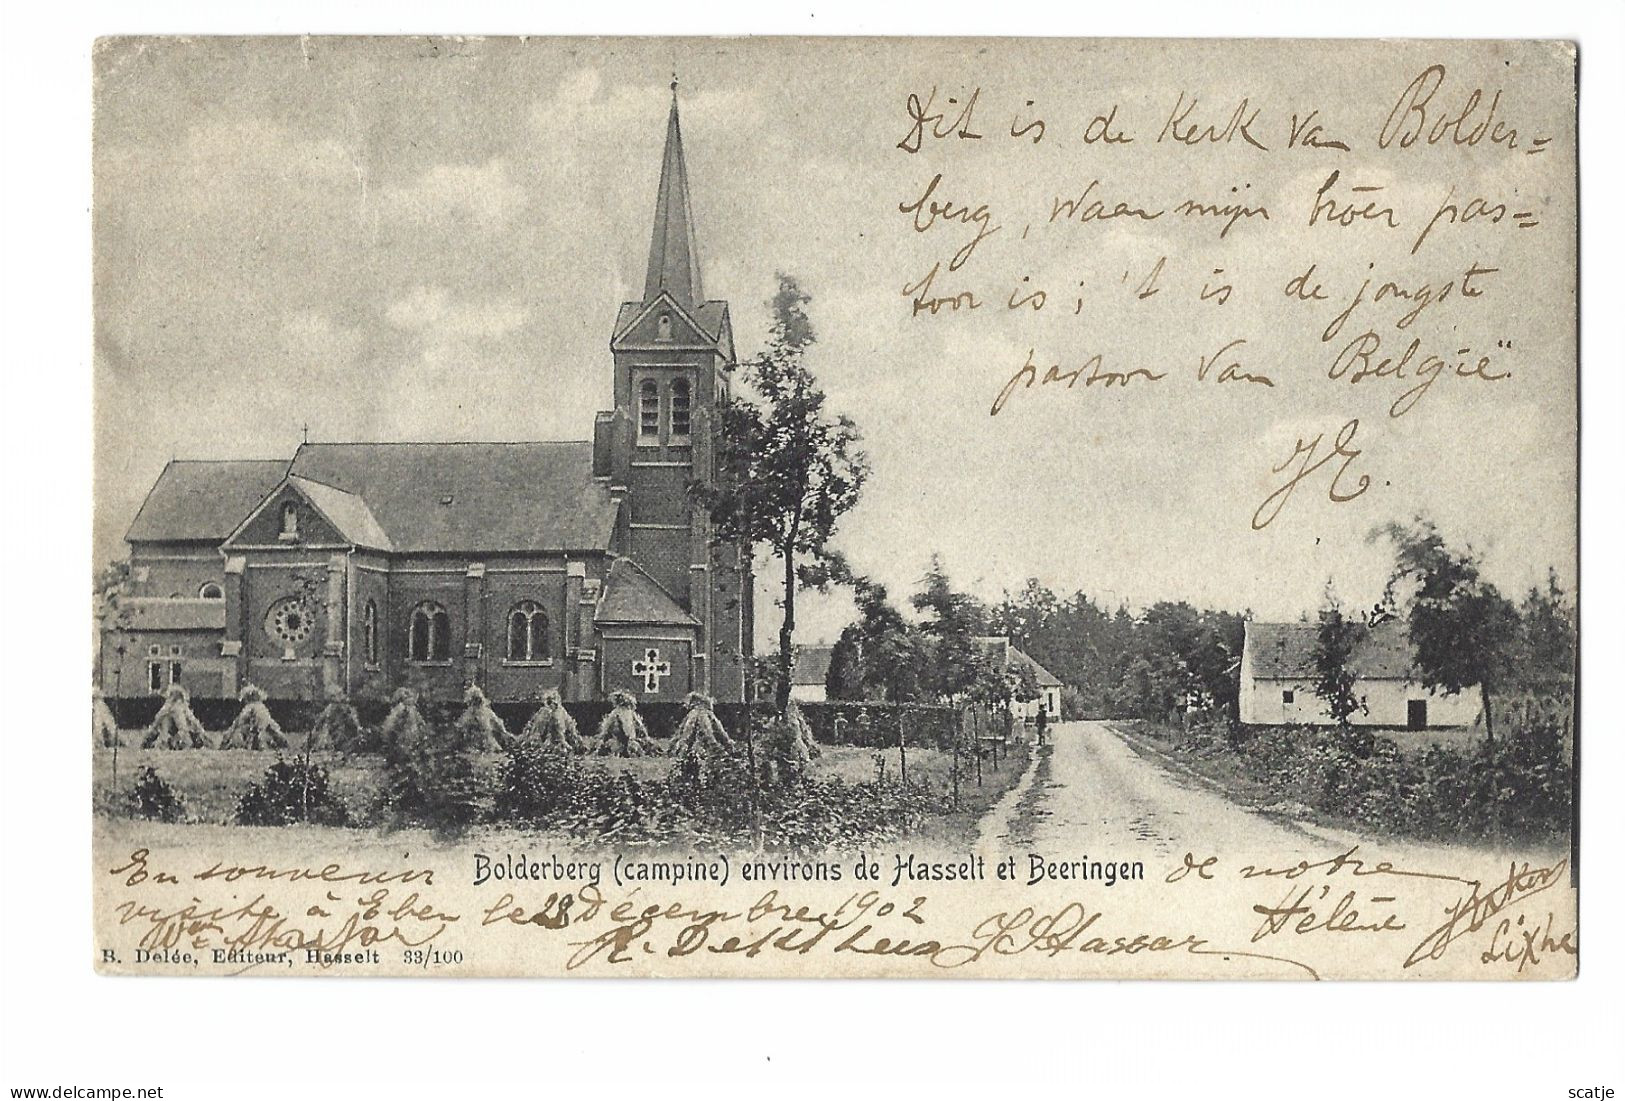 Dit is de Kerk van Bolder=
berg, waar mijn broer pas=
toor is; 't is de jongste
pastoor van België.
JE.
Bolderberg (campine) environs de Hasselt et Beeringen
En souvenir de notre
visite à Eben le 28 Décembre 1902
Hélène
Lixhe
B. Delée, Editeur, Hasselt 33/100
scatje